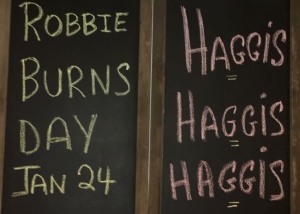 ROBBIE
BURNS
DAY
JAN 24
HAGGIS
HAGGIS
HAGGIS